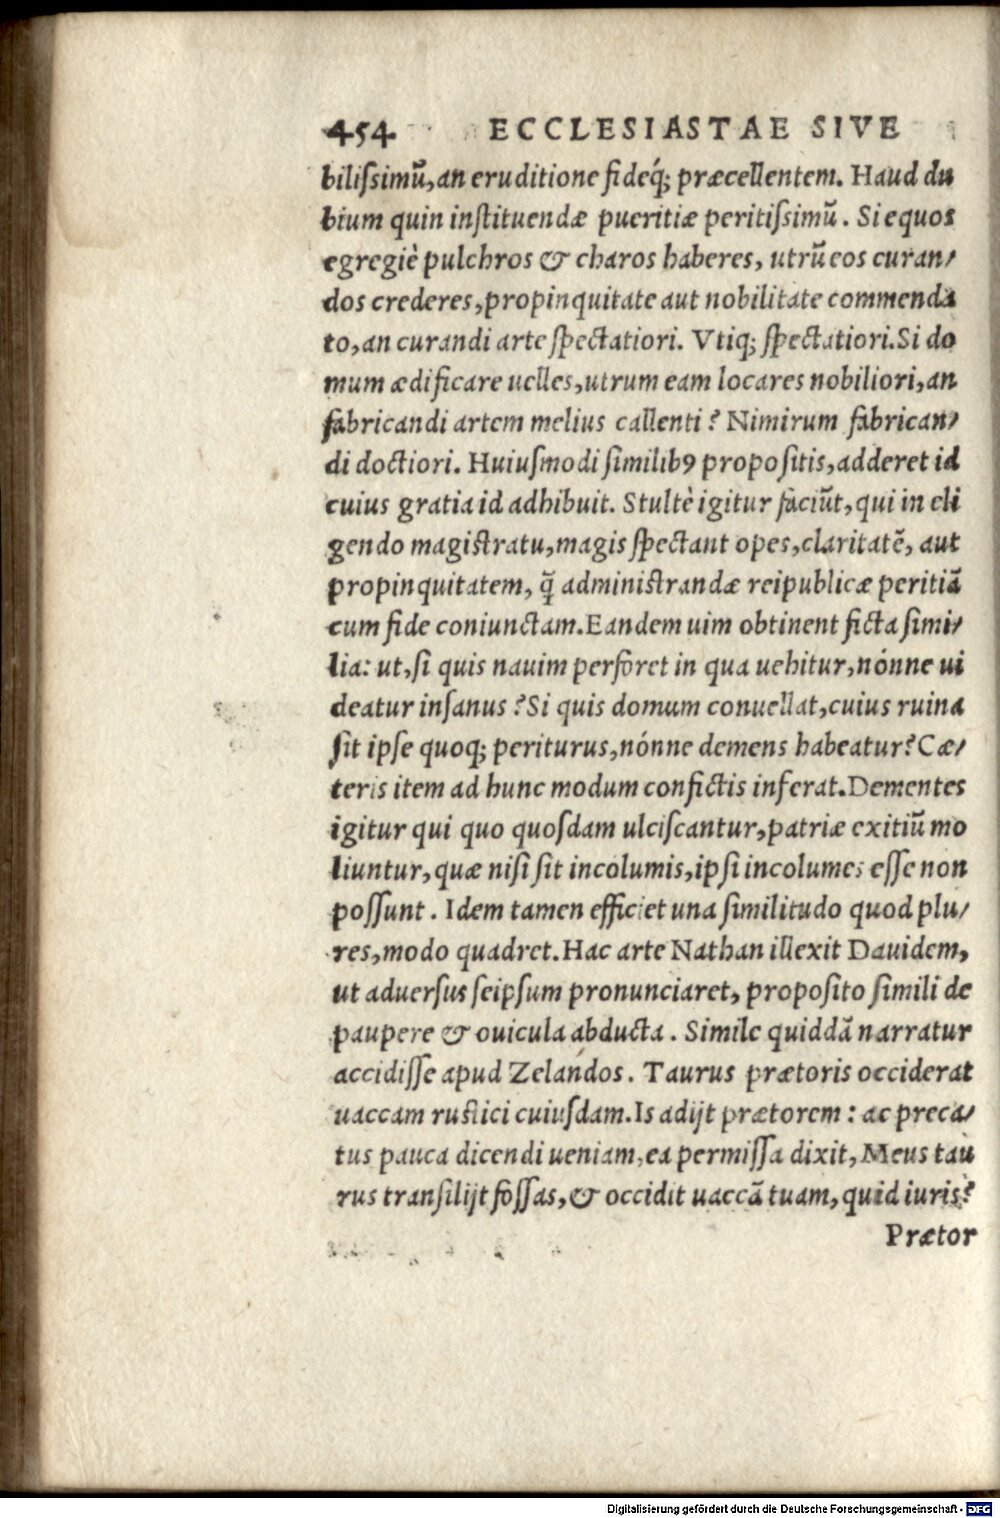 454 ECCLESIASTAE SIVE
bilißimũ, an eruditione fideq́; præcellentem. Haud du
bium quin instituendæ pueritiæ peritißimũ. Si equos
egregiè pulchros & charos haberes, utrũ eos curan/
dos crederes, propinquitate aut nobilitate commenda
to, an curandi arte spectatiori. Vtiq; spectatiori. Si do
mum ædificare uelles, utrum eam locares nobiliori, an
fabricandi artem melius callenti? Nimirum fabrican/
di doctiori. Huiusmodi similibꝰ propositis, adderet id
cuius gratia id adhibuit. Stultè igitur faciũt, qui in eli
gendo magistratu, magis spectant opes, claritatẽ, aut
propinquitatem, q̃ administrandæ reipublicæ peritiã
cum fide coniunctam. Eandem uim obtinent ficta simi/
lia: ut, si quis nauim perforet in qua uehitur, nónne ui
deatur insanus? Si quis domum conuellat, cuius ruina
sit ipse quoq; periturus, nónne demens habeatur? Cæ/
teris item ad hunc modum confictis inferat. Dementes
igitur qui quo quosdam ulciscantur, patriæ exitiũ mo
liuntur, quæ nisi sit incolumis, ipsi incolumes esse non
possunt. Idem tamen efficiet una similitudo quod plu/
res, modo quadret. Hac arte Nathan illexit Dauidem,
ut aduersus seipsum pronunciaret, proposito simili de
paupere & ouicula abducta. Simile quiddã narratur
accidisse apud Zelandos. Taurus prætoris occiderat
uaccam rustici cuiusdam. Is adijt prætorem: ac preca/
tus pauca dicendi ueniam, ea permissa dixit, Meus tau
rus transilijt fossas, & occidit uaccã tuam, quid iuris?
Prætor
Digitalisierung gefördert durch die Deutsche Forschungsgemeinschaft - DFG